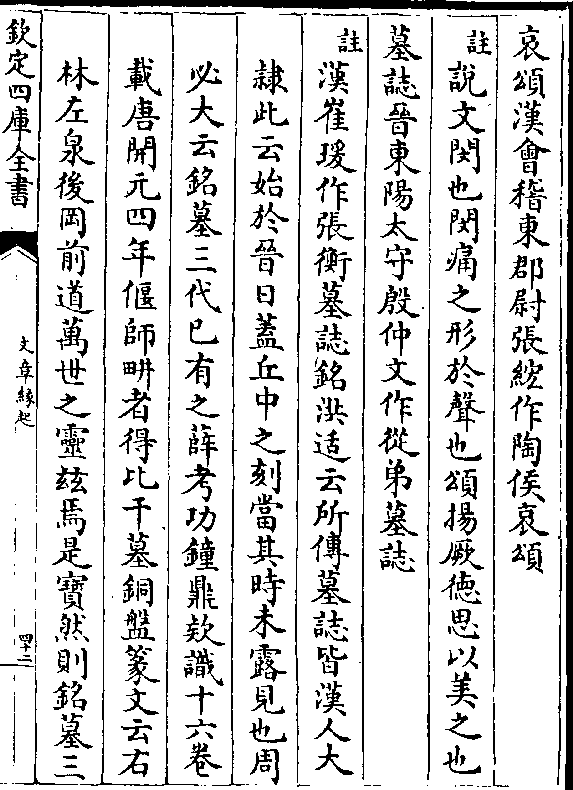 哀頌漢會稽東郡尉張綋作陶侯哀頌
註說文閔也閔痛之形於聲也頌揚厥德思以美之也
墓誌晉東陽太守殷仲文作從弟墓誌
註漢崔瑗作張衡墓誌銘洪适云所傳墓誌皆漢人大
隷此云始於晉日蓋丘中之刻當其時未露見也周
必大云銘墓三代已有之薛考功鐘鼎欵識十六卷
載唐開元四年偃師畊者得比干墓銅盤篆文云右
林左泉後岡前道萬世之靈兹焉是寶然則銘墓三
欽定四庫全書
文章緣起
四十二